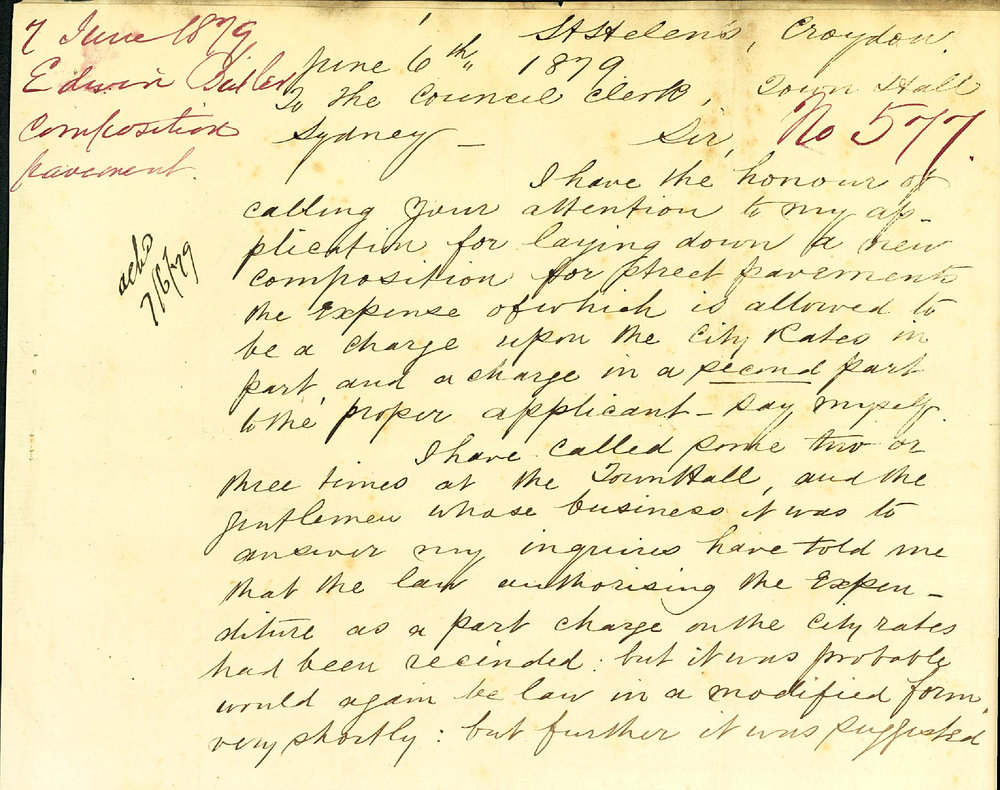 7 June 1879
Edwin Butler
Composition
pavement.
No 577.
ackd
7/6/79
St Helens, Croydon.
June 6th, 1879
To the Council Clerk, Town Hall
Sydney — Sir,
I have the honour of
calling your attention to my ap-
plication for laying down a new
composition for street pavements
the Expense of which is allowed to
be a charge upon the City Rates in
part, and a charge in a second part
to the proper applicant — say myself.
I have called some two or
three times at the Town Hall, and the
gentlemen whose business it was to
answer my inquires have told me
that the law authorising the Expen-
diture as a part charge on the city rates
had been recinded: but it was probable
would again be law in a modified form,
very shortly: but further it was suggested